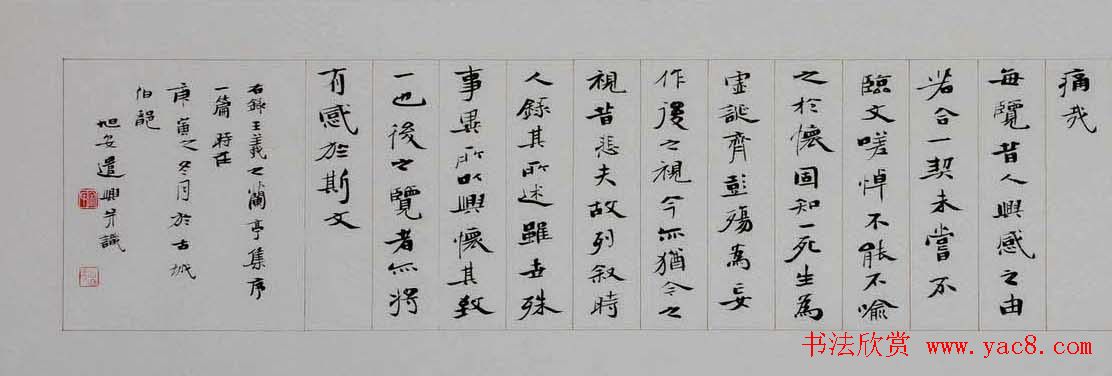 痛哉
每覽昔人興感之由
若合一契未嘗不
臨文嗟悼不能不喻
之於懷固知一死生為
虛誕齊彭殤為妄
作後之視今亦猶今之
視昔悲夫故列敘時
人錄其所述雖世殊
事異所以興懷其致
一也後之覽者亦將
有感於斯文
右錄王羲之蘭亭集序
一篇時在
庚寅之冬月於古城
伯
旭安遣興并識
书法欣赏 www.yac8.com